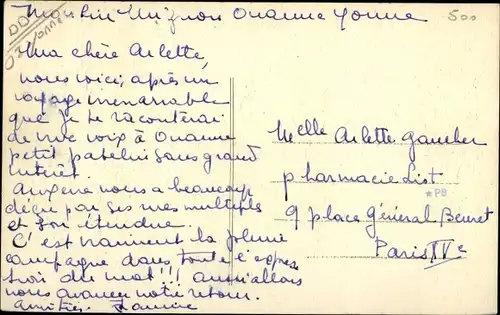 Ouanne Yonne
500
Ma chère Arlette,
nous voici, après un
voyage inénarrable
que je te raconterai
de vive voix à Ouanne
petit patelin sans grand
intérêt.
nous a beaucoup
déçu par ses rues multiples
et son étendue.
C'est vraiment la pleine
campagne dans toute l'expres
sion du mot!!! aussi allons
nous avancer notre retour.
Amitiés.
Melle Arlette Gaucher
pharmacie List
*PB
9 place Général Beuret
Paris XVe